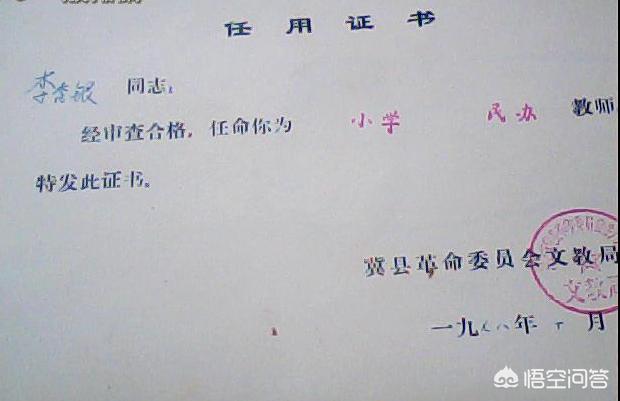 任用证书
李杏银 同志：
经审查合格，任命你为 小学 民办 教师
特发此证书。
冀县革命委员会文教局
一九 八年 月
悟空问答